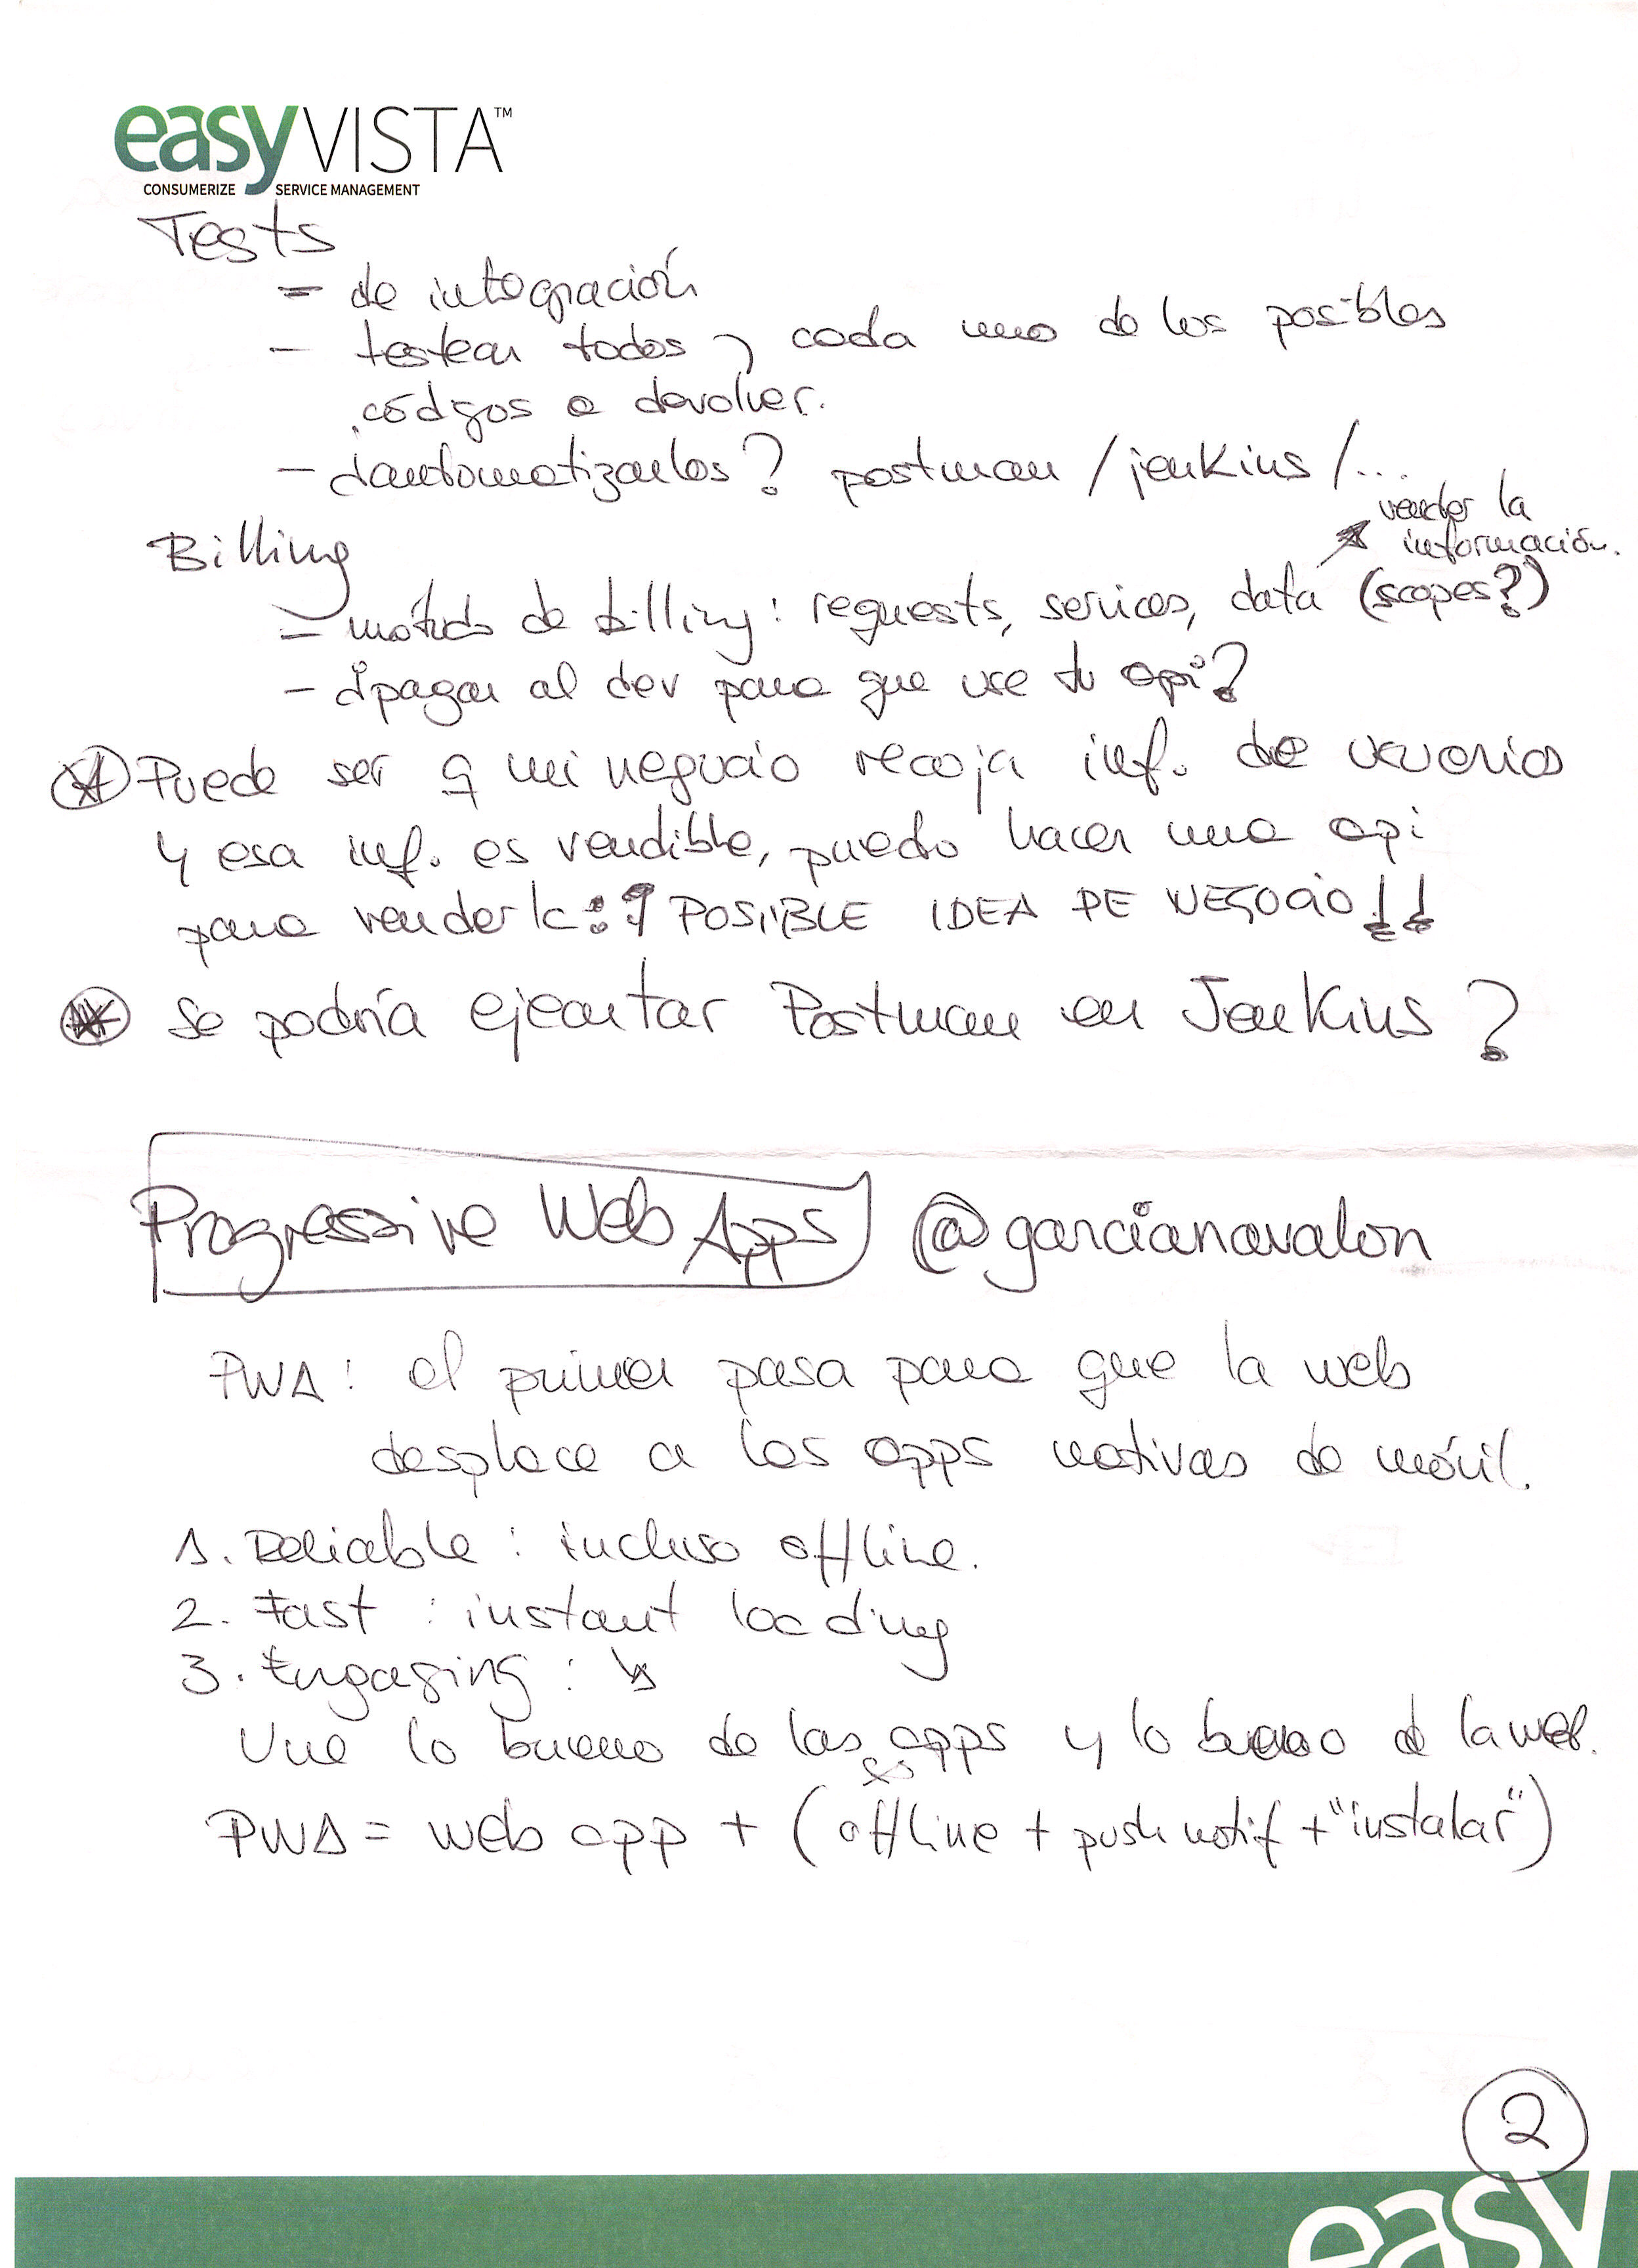 easyVISTA™
CONSUMERIZE SERVICE MANAGEMENT
Tests
- de integración
- testear todos y cada uno de los posibles
códigos a devolver.
- ¿automatizarlos? postman / jenkins / ...
vender la
información.
Billing
- método de billing: requests, services, data (scopes?)
- ¿pagar al dev para que use tu api?
* Puede ser q mi negocio recoja inf. de usuarios
y esa inf. es vendible, puedo hacer una api
para venderla: ? POSIBLE IDEA DE NEGOCIO!!
** Se podría ejecutar Postman en Jenkins?
Progressive Web Apps @garcianavalon
PWA: el primer pasa para que la web
desplace a las apps nativas de móvil.
1. Reliable: incluso offline.
2. Fast: instant loading
3. Engaging: ↳
Une lo bueno de las apps y lo bueno d la web.
PWA = web app + (offline + push notif + "instalar")
2
easy